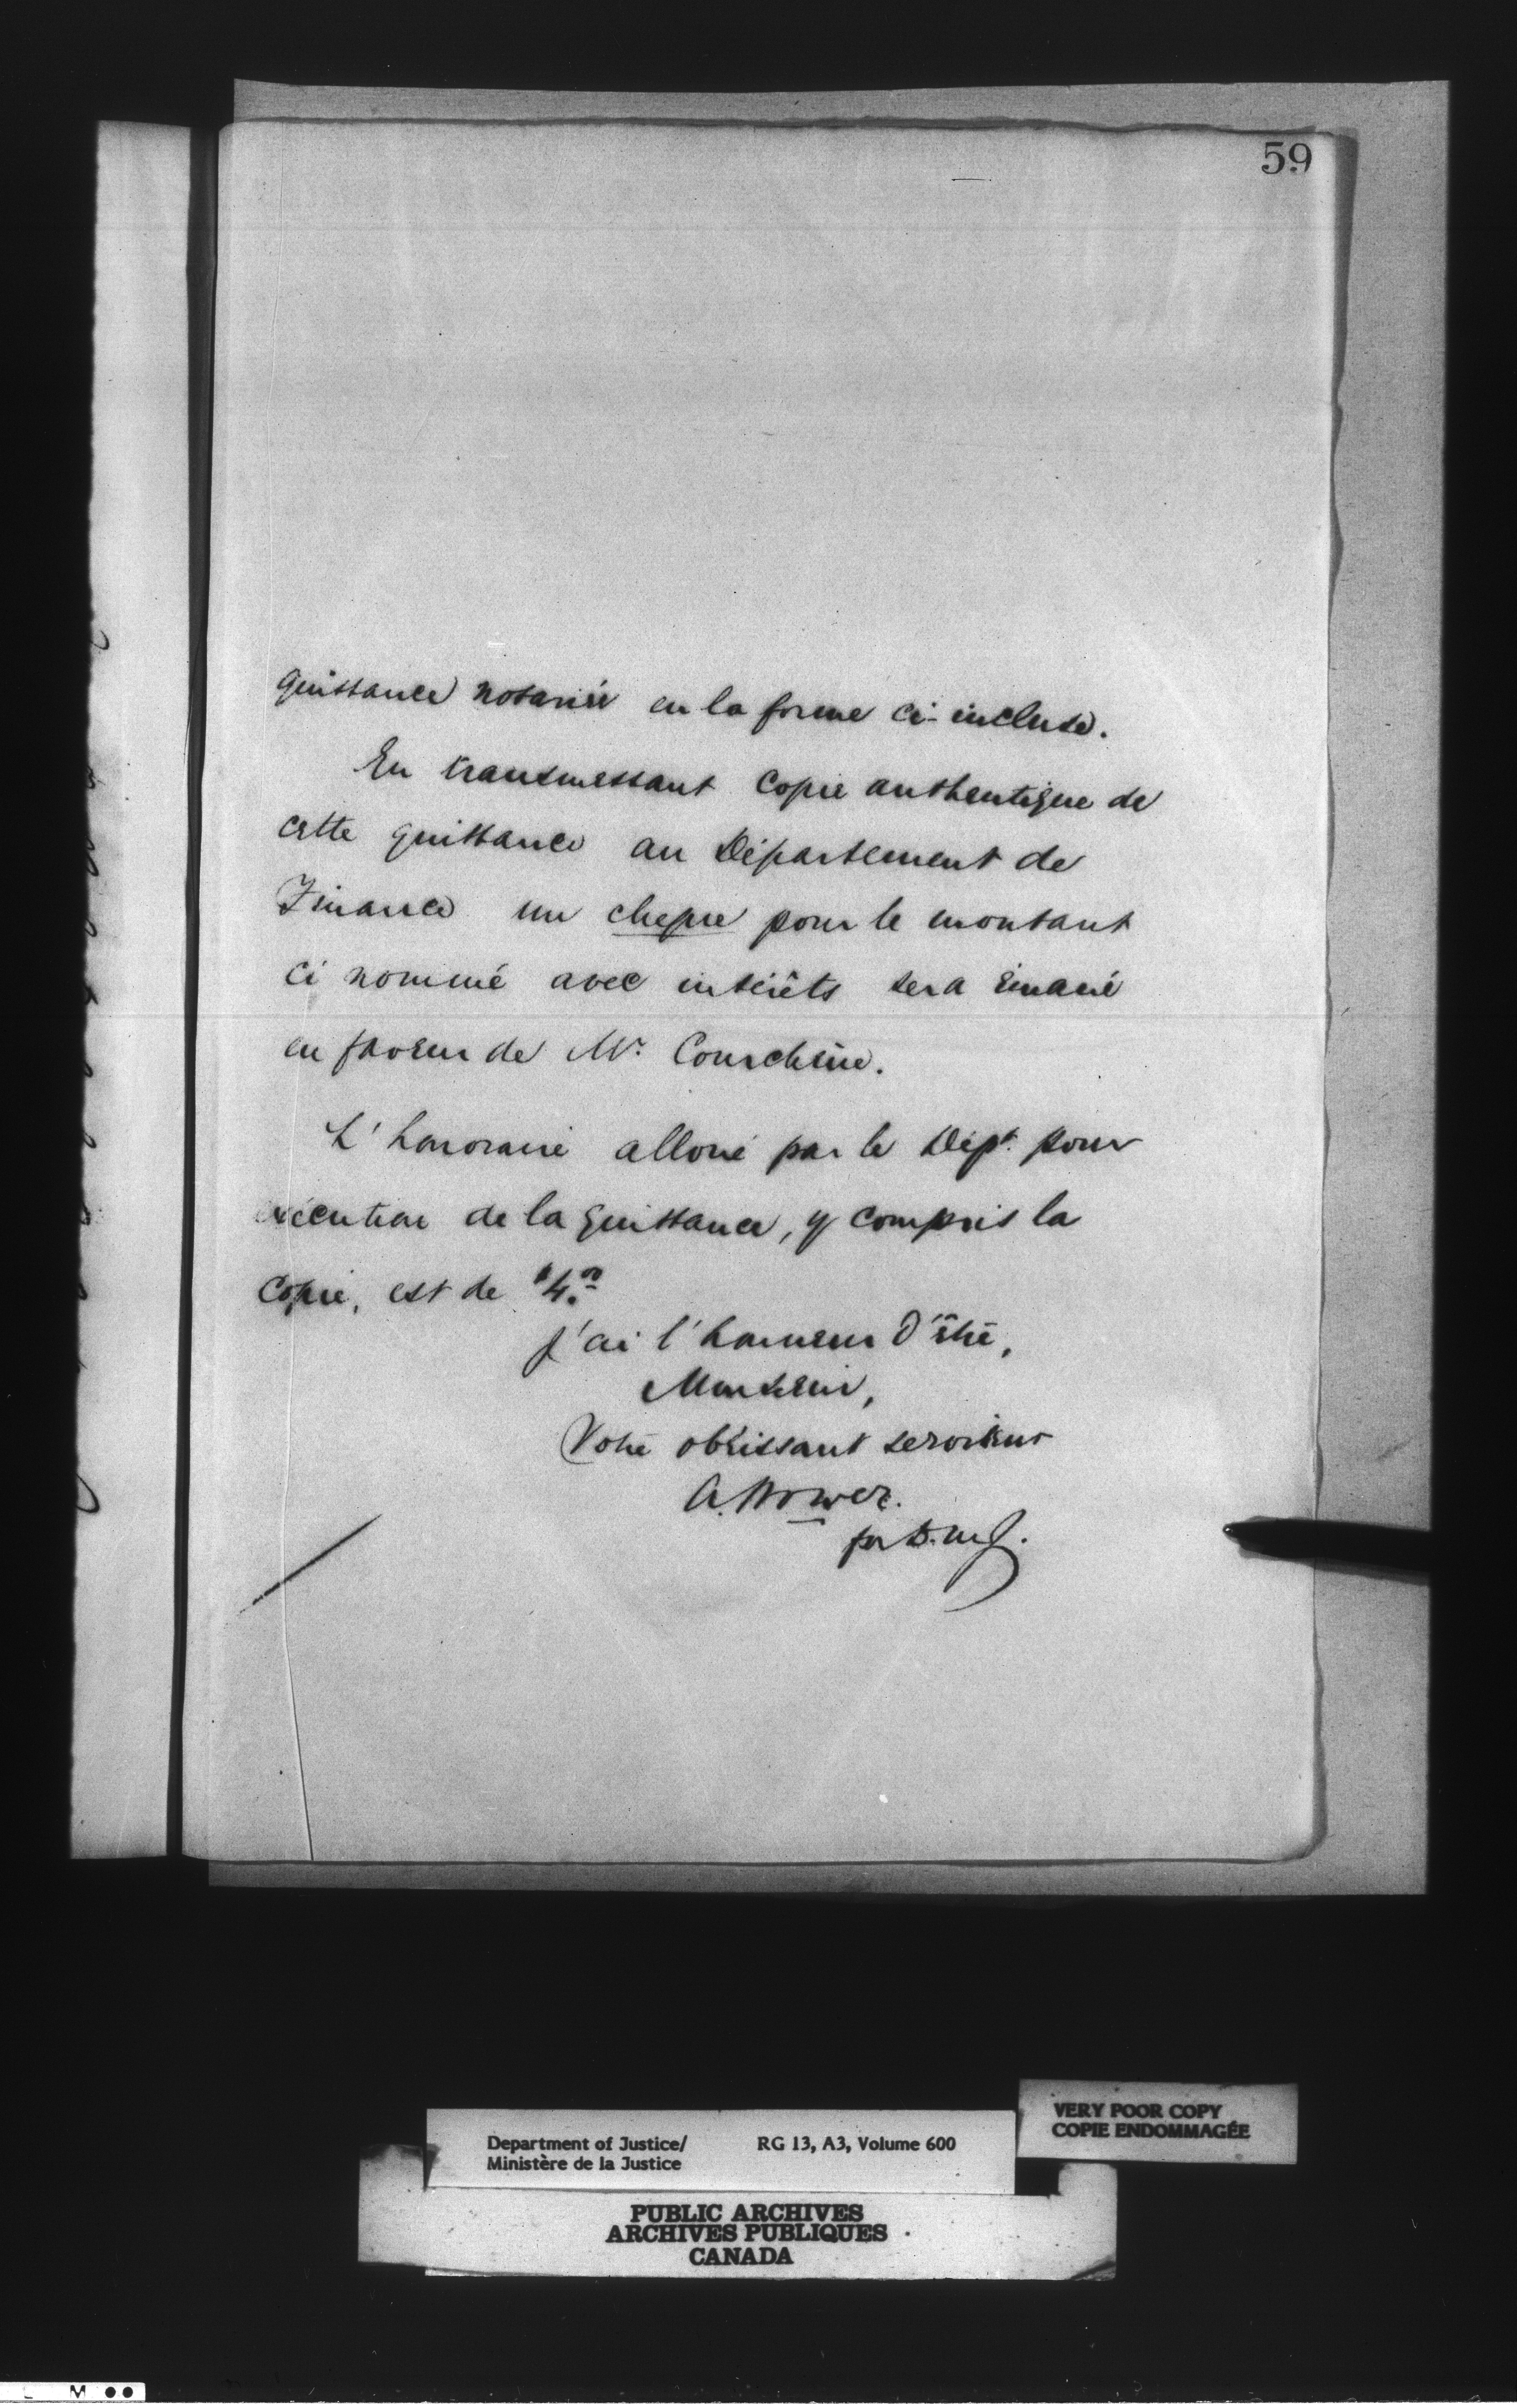 59
quittance notariée en la forme ci-incluse.
En transmettant copie authentique de
cette quittance au Département de
Finance un cheque pour le montant
ci nommé avec intérêts sera émané
en faveur de Mr. Courchêne.
L'honoraire alloué par le Dépt. pour
exécution de la quittance, y compris la
copie, est de $4.00
J'ai l'honneur d'être,
Monsieur,
Votre obéissant serviteur
A. Power.
per
Department of Justice/ RG 13, A3, Volume 600
Ministère de la Justice
VERY POOR COPY
COPIE ENDOMMAGÉE
PUBLIC ARCHIVES
ARCHIVES PUBLIQUES
CANADA